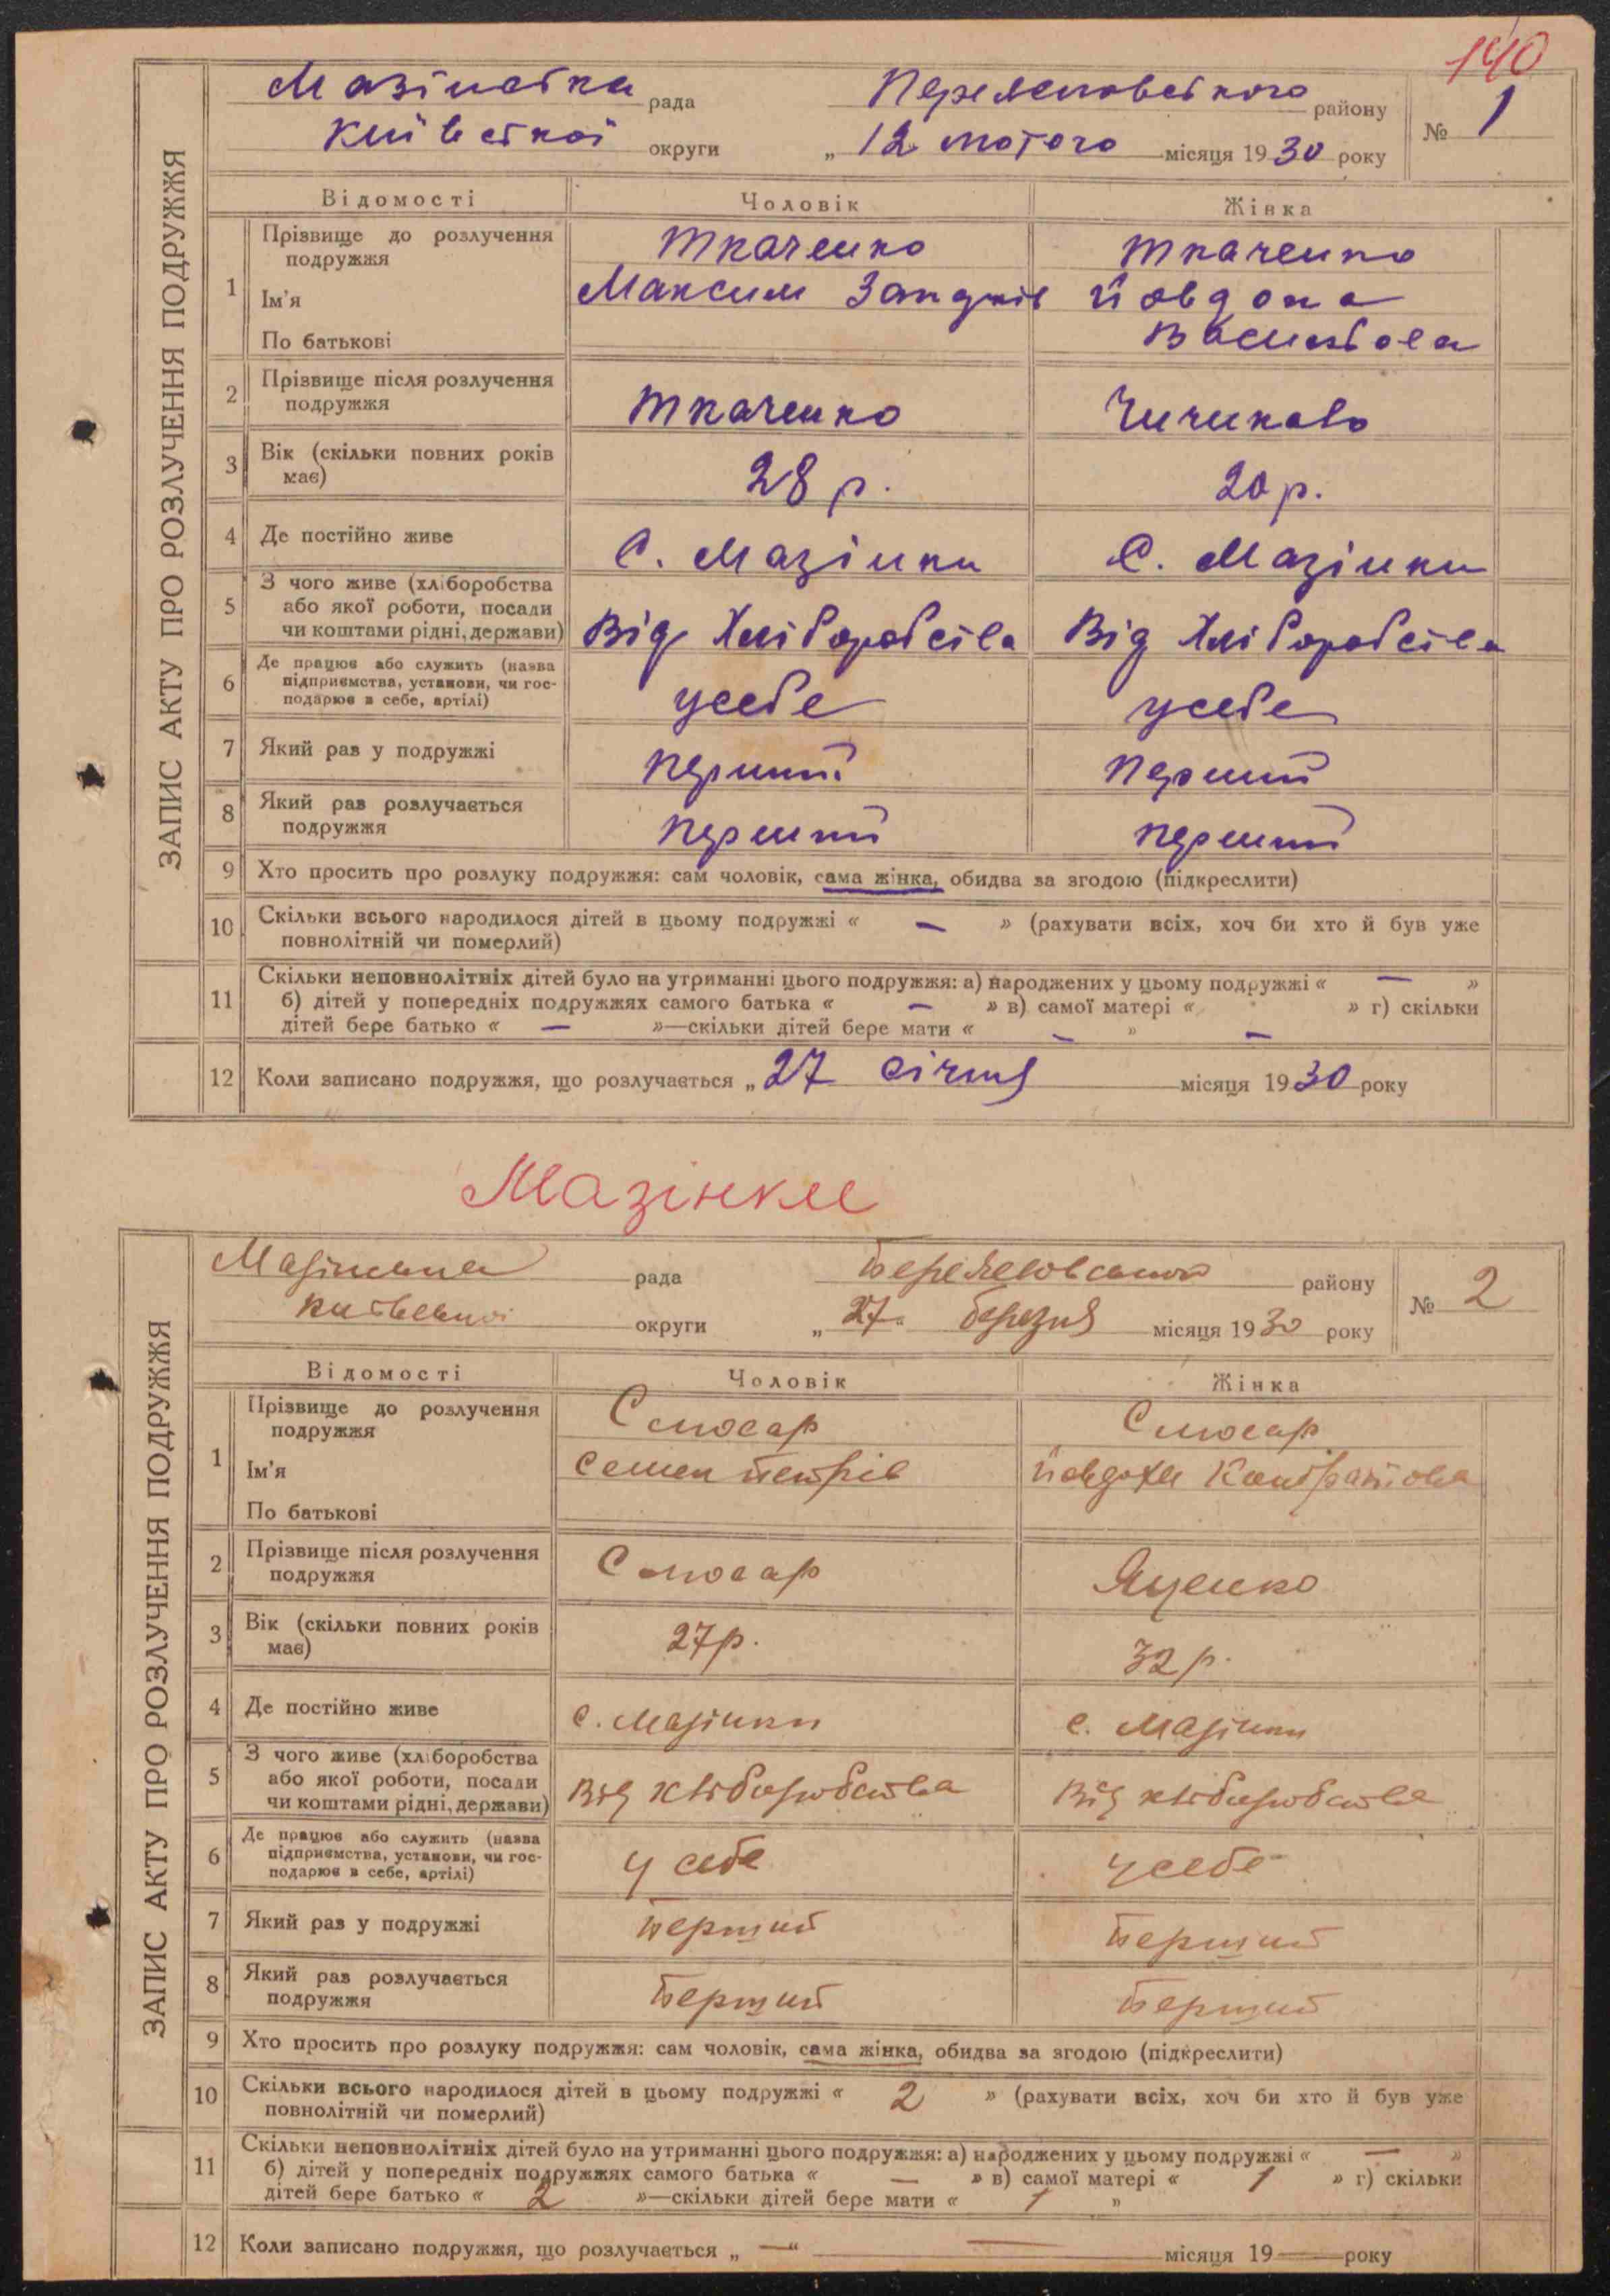 140
ЗАПИС АКТУ ПРО РОЗЛУЧЕННЯ ПОДРУЖЖЯ
Мазінська рада Переяславського району № 1
Київської округи „ 12 лютого місяця 1930 року
Відомості Чоловік Жінка
1 Прізвище до розлучення подружжя Ткаченко Ткаченко
Ім'я Максим Йовдоха
По батькові Василівна
2 Прізвище після розлучення подружжя Ткаченко
3 Вік (скільки повних років має) 28 р. 20 р.
4 Де постійно живе С. Мазінки С. Мазінки
5 З чого живе (хліборобства або якої роботи, посади чи коштами рідні, держави) Від Хліборобства Від Хліборобства
6 Де працює або служить (назва підприємства, установи, чи господарює в себе, артілі) усебе усебе
7 Який раз у подружжі перший перший
8 Який раз розлучається подружжя перший перший
9 Хто просить про розлуку подружжя: сам чоловік, сама жінка, обидва за згодою (підкреслити)
10 Скільки всього народилося дітей в цьому подружжі « — » (рахувати всіх, хоч би хто й був уже
повнолітній чи померлий)
11 Скільки неповнолітніх дітей було на утриманні цього подружжя: а) народжених у цьому подружжі « — »
б) дітей у попередніх подружжях самого батька « — » в) самої матері « » г) скільки
дітей бере батько « — »—скільки дітей бере мати « — » —
12 Коли записано подружжя, що розлучається „ 27 січня місяця 1930 року
Мазінки
ЗАПИС АКТУ ПРО РОЗЛУЧЕННЯ ПОДРУЖЖЯ
Мазінська рада Переяславського району № 2
Київської округи „ 27 березня місяця 1930 року
Відомості Чоловік Жінка
1 Прізвище до розлучення подружжя Слюсар Слюсар
Ім'я Семен Петрів Йовдоха Кондратова
По батькові
2 Прізвище після розлучення подружжя Слюсар Яценко
3 Вік (скільки повних років має) 27 р. 32 р.
4 Де постійно живе с. Мазінки с. Мазінки
5 З чого живе (хліборобства або якої роботи, посади чи коштами рідні, держави) Від хліборобства Від хліборобства
6 Де працює або служить (назва підприємства, установи, чи господарює в себе, артілі) у себе усебе
7 Який раз у подружжі Перший Перший
8 Який раз розлучається подружжя Перший Перший
9 Хто просить про розлуку подружжя: сам чоловік, сама жінка, обидва за згодою (підкреслити)
10 Скільки всього народилося дітей в цьому подружжі « 2 » (рахувати всіх, хоч би хто й був уже
повнолітній чи померлий)
11 Скільки неповнолітніх дітей було на утриманні цього подружжя: а) народжених у цьому подружжі « — »
б) дітей у попередніх подружжях самого батька « — » в) самої матері « 1 » г) скільки
дітей бере батько « 2 »—скільки дітей бере мати « 1 »
12 Коли записано подружжя, що розлучається „ —“ — місяця 19— року